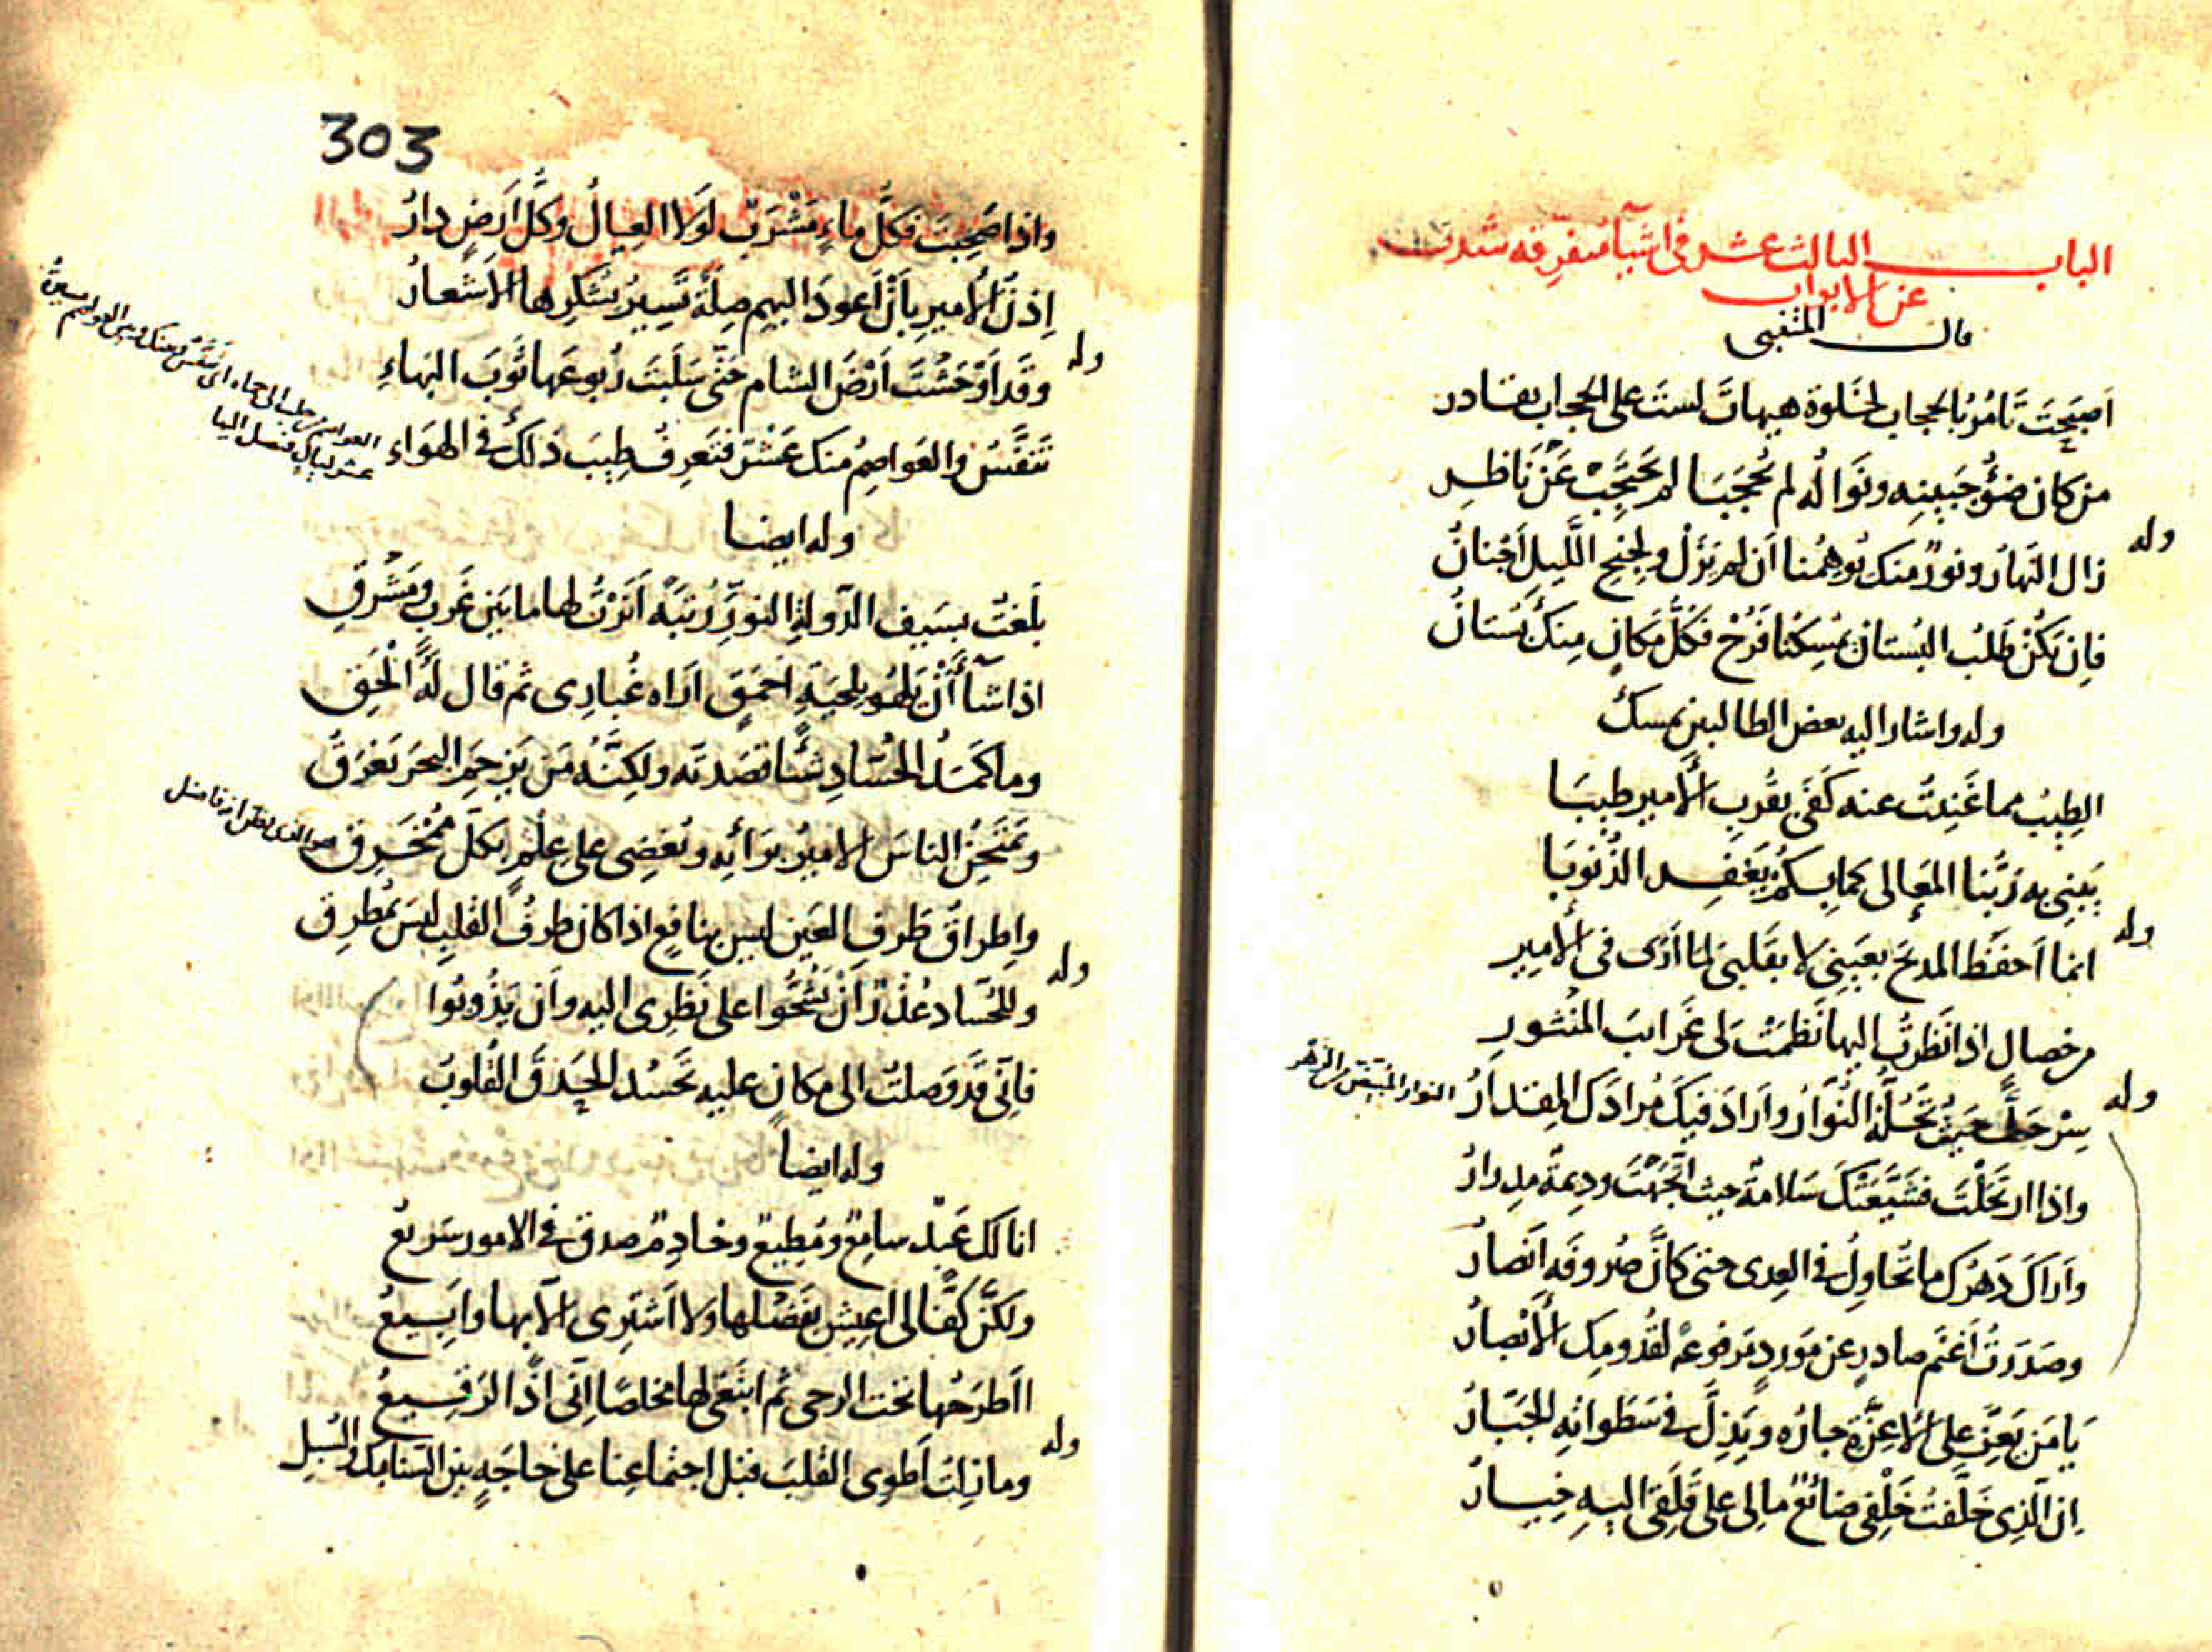 الباب الثالث عشر فى اشيآ متفرقه شذت
عن الابواب
قال المتنبى
اَصبَحتَ تَامُرُ بالحجاب لخَلوة هيهاتَ لستَ على الحجاب بقادر
من كان ضؤُ جَبينِه ونَوالُه لم يُحجَبا لم يَحتَجِبْ عَنْ نَاظر
وله
زال النّهارُ ونورٌ منك يُوهِمُنا اَن لم يَزَلْ ولجِنحِ اللَّيل اَجْنانُ
فاِن يَكُنْ طَلَبُ البُستانِ يُمسِكُنا فَرُحْ فكُلُّ مَكانٍ مِنكَ بُستانُ
وله واشار اليه بعض الطالبين بمسك
الطِيبُ مما غَنِيتُ عنه كَفَى بقُربِ الأميرِ طيبَا
يَبنِى به رَبُّنا المَعالى كما بِكُم يَغفِر الذُّنوبَا
وله
انما اَحفَظ المديحَ بعَيْنِى لا بقَلبى لما اَرَى فى الأمِير
من خصالٍ اذا نَظرتُ اليها نَظمَتْ لى غَرائبَ المنْثورِ
وله
سِرْ حَلَّ حَيثُ تَحُلّه النُوَّارُ واَرادَ فيكَ مُرادَكَ المِقدارُ
النوار المتيقن من الزهر
واذا ارتَحَلْتَ فشَيَّعَتْكَ سَلامةٌ حيث اتَّجَهْتَ ودِيمَةٌ مِدرارُ
واَراكَ دَهرُك ما تُحاوِلُ فى العِدى حتى كَانَّ صُروفَه اَنصارُ
وصَدَرتَ اَغنَم صادرٍ عن مَورِدٍ مَرفوعةً لقُدومِك الأبْصارُ
يَا مَن يَعِزُّ على الاَعِزَّةِ جارُه ويَذِلُّ فى سَطَواتِهِ الجَبَّارُ
اِن الَّذِى خَلَّفتُ خَلْفِى ضائعٌ مالى على قَلَقى اليهِ خِيارُ
303
واذا صُحِبتَ فكلُّ ماءٍ مَشْرَبٌ لَولا العِيالُ وكلُّ اَرضٍ دارُ
اِذنُ الأميرِ باَنْ اَعودَ اليهِم صِلَةٌ تَسِيرُ بشُكرِها الاشعارُ
وله
وقَد اَوْحَشْتَ اَرْضَ الشام حَتّى سَلَبتَ رُبوعَها ثَوبَ البَهاءِ
تَنَفَّسُ والعَواصِمُ منك عَشْرٌ فتَعرِفُ طِيبَ ذلك فى الهَوَاءِ
العواصم من حلب الى حماه اى تتنفس وبينك وبين العواصم مسيرة
عشر ليال فيصل اليها
وله ايضا
بلَغتُ بسَيفِ الدَّولةِ النورِ رُتبَةً اَنَرْتُ لها ما بَين غَربٍ ومَشرقِ
اذا شآءَ اَنْ يَلهُو بلحيَةِ اَحمَقٍ اَراه غُبارِى ثم قال لَهُ الْحَقِ
وما كَمَدُ الحُسّادِ شَئًا قصَدتُه ولكِنَّه مَن يَزحَمِ البحرَ يَغرَقُ
ويَمتَحِنُ الناسَ الاميرُ برَائِه ويُغضِى على عِلْمٍ بكلّ مُمَخرِقِ
واِطراقُ طَرفِ العَينِ ليس بنافعٍ اذا كان طرفُ القلبِ ليسَ بمُطرِقِ
وله
وللحُسّاد عُذْرٌ اَنْ يَشُحُّوا على نَظَرِى اليه واَن يَذُوبُوا
فاِنّى قَد وَصلتُ الى مكانٍ عليه تَحسُد الحَدَقَ القُلوبُ
وله ايضاً
انا لك عَبْد سامعٌ ومُطيعٌ وخادِمُ صدق فى الامور سَريعُ
ولكنَّ كَفًّا لى اَعِيش بفَضْلها ولا اشترى الّا بها واَبِيعُ
اَاَطرَحُها تحت الرحى ثم ابتَغى لها مخلصًا اِنّى اذًا لرَقِيعُ
وله
وما زِلتُ اَطوِى القَلبَ قبل اجتماعِنا على حاجَةٍ بين السّنابك والسُبلِ